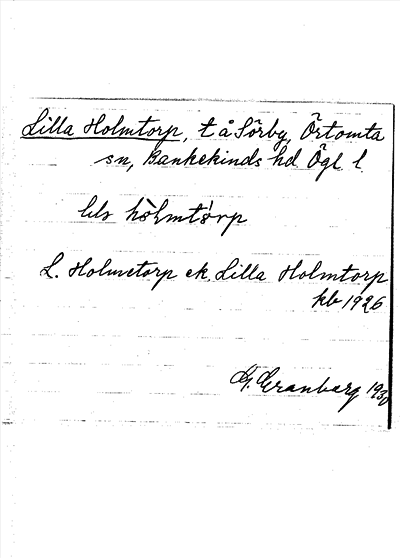 Lilla Holmtorp, t å Sörby, Örtomta
sn, Bankekinds hd Ögl. l.
lìls hòlmtòrp
L. Holmetorp ek, Lilla Holmtorp
kb 1926
G. Granberg 1930